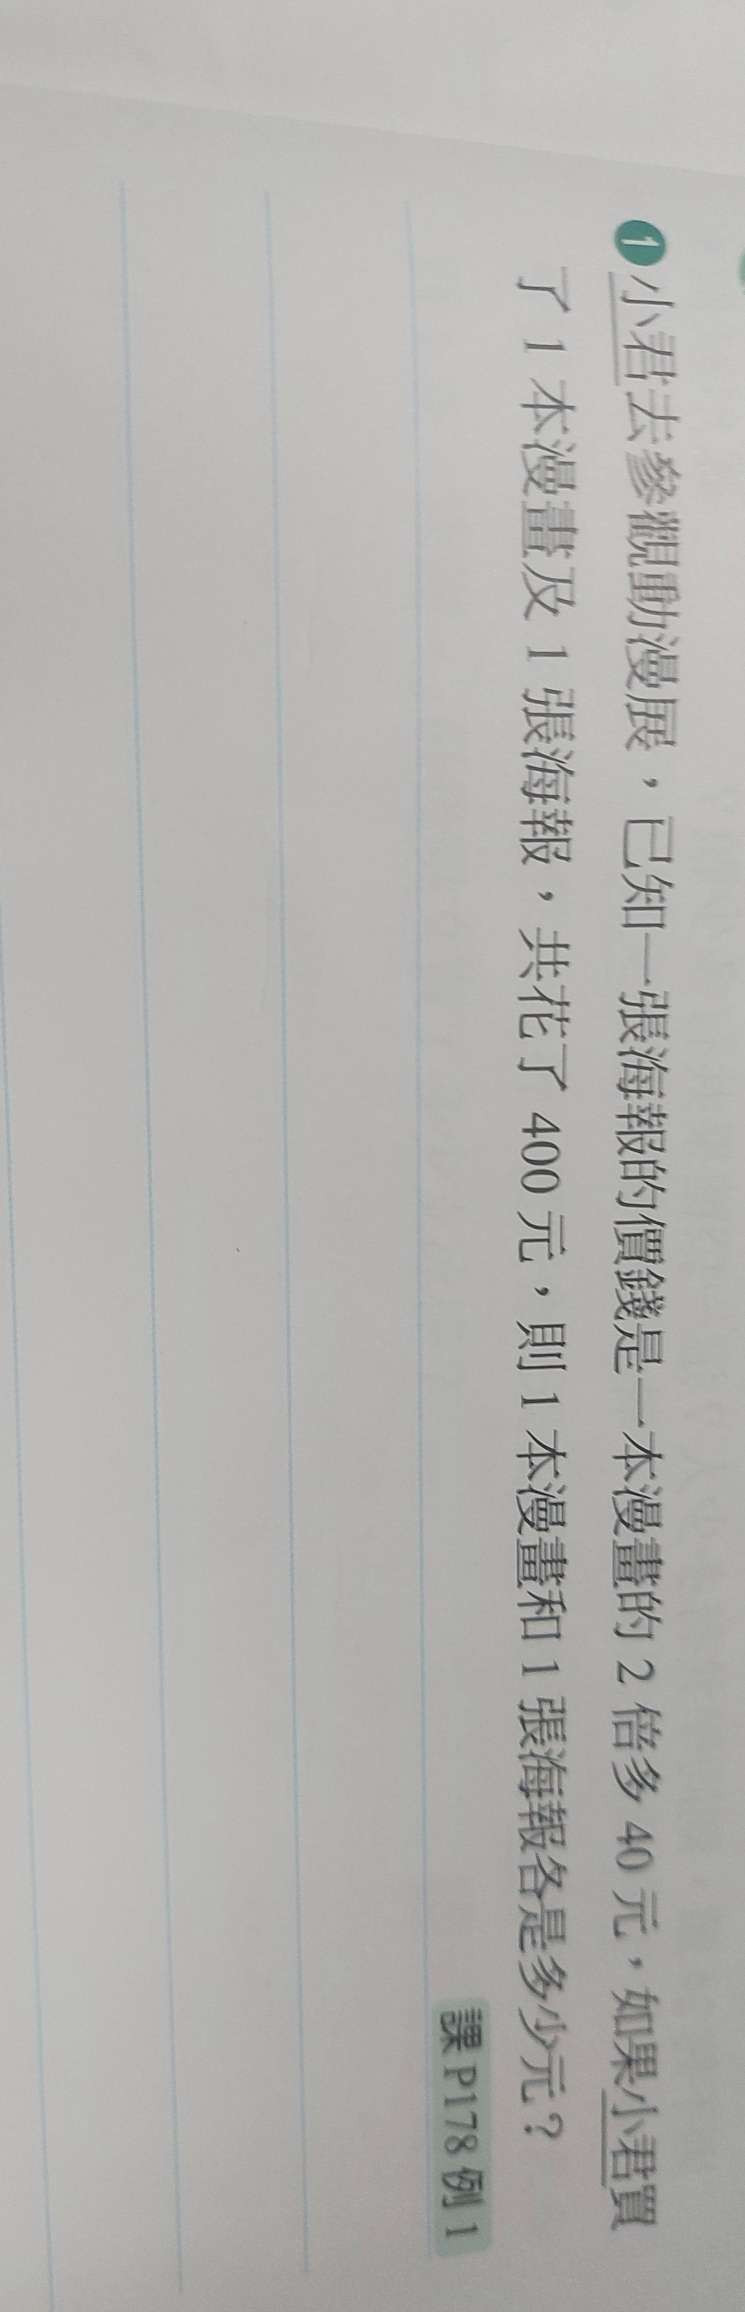 1 小君去參觀動漫展，已知一張海報的價錢是一本漫畫的 2 倍多 40 元，如果小君買
了 1 本漫畫及 1 張海報，共花了 400 元，則 1 本漫畫和 1 張海報各是多少元？
課 P178 例 1